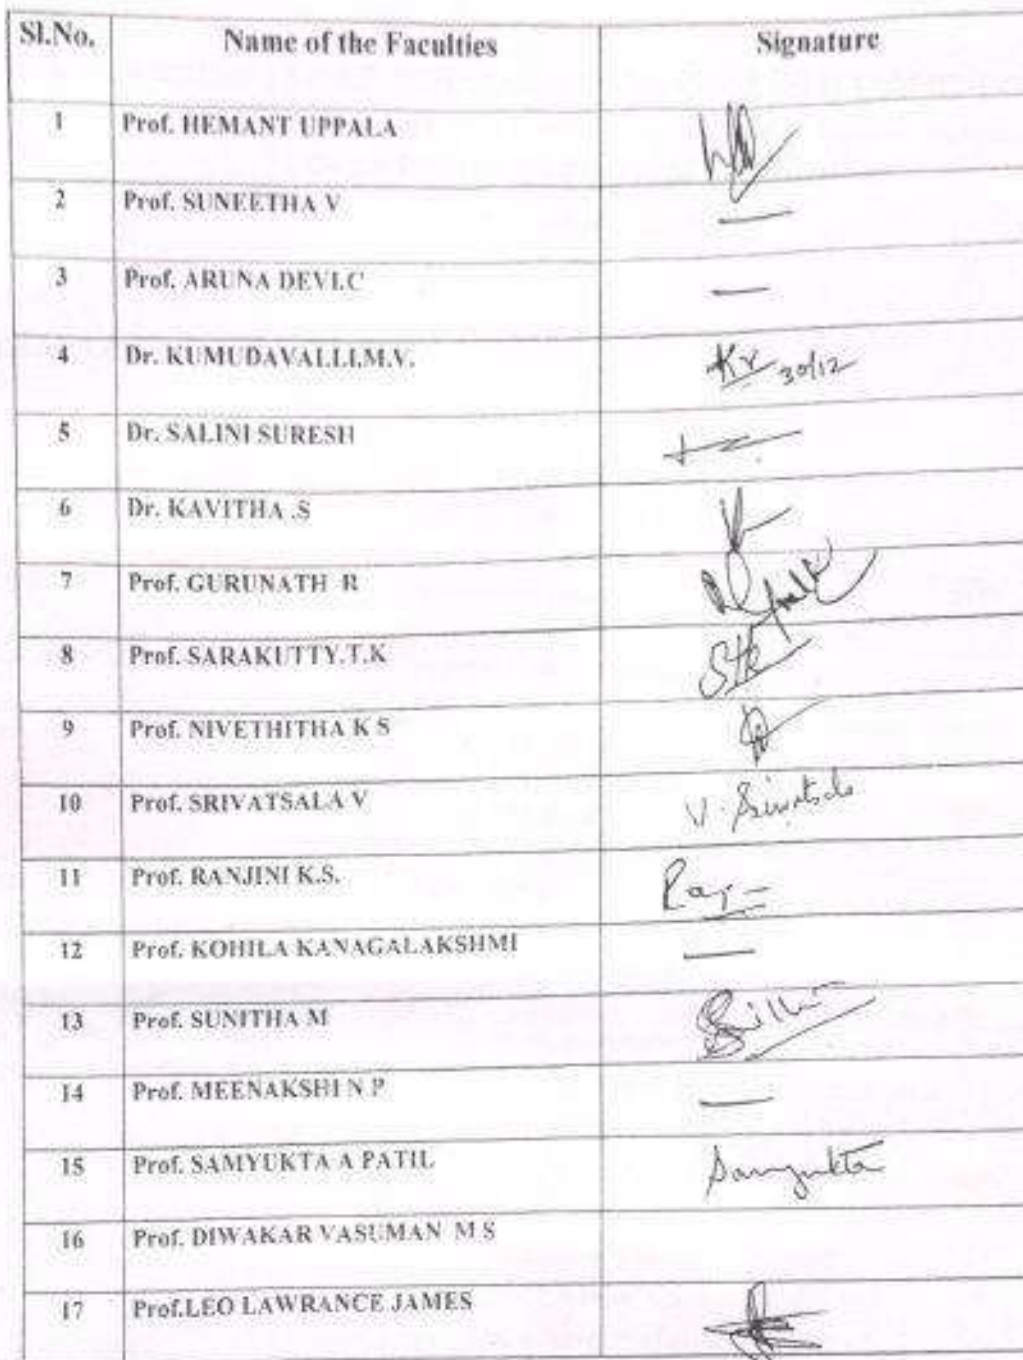 Sl.No. Name of the Faculties Signature
1 Prof. HEMANT UPPALA
2 Prof. SUNEETHA V —
3 Prof. ARUNA DEVI.C —
4 Dr. KUMUDAVALLI.M.V. Kv 30/12
5 Dr. SALINI SURESH
6 Dr. KAVITHA .S
7 Prof. GURUNATH R
8 Prof. SARAKUTTY.T.K STK
9 Prof. NIVETHITHA K S
10 Prof. SRIVATSALA V V. Srivatsala
11 Prof. RANJINI K.S. Raj
12 Prof. KOHILA KANAGALAKSHMI —
13 Prof. SUNITHA M
14 Prof. MEENAKSHI N P —
15 Prof. SAMYUKTA A PATIL Samyukta
16 Prof. DIWAKAR VASUMAN M S
17 Prof.LEO LAWRANCE JAMES